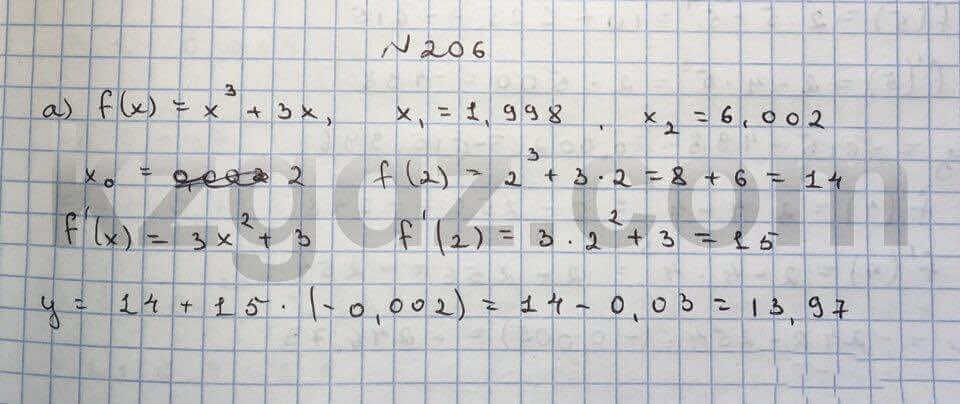 №206
а) f(x) = x³ + 3x, x₁ = 1,998. x₂ = 6,002
x₀ = 2 f(2) = 2³ + 3·2 = 8 + 6 = 14
f'(x) = 3x² + 3 f'(2) = 3·2² + 3 = 15
y = 14 + 15·(-0,002) = 14 - 0,03 = 13,97
kzgdz.com